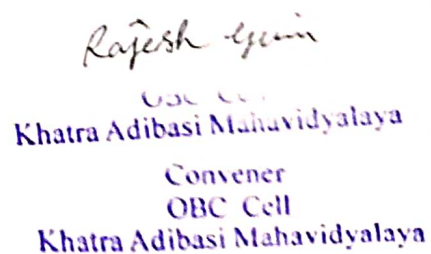 Rajesh
OBC Cell
Khatra Adibasi Mahavidyalaya
Convener
OBC Cell
Khatra Adibasi Mahavidyalaya